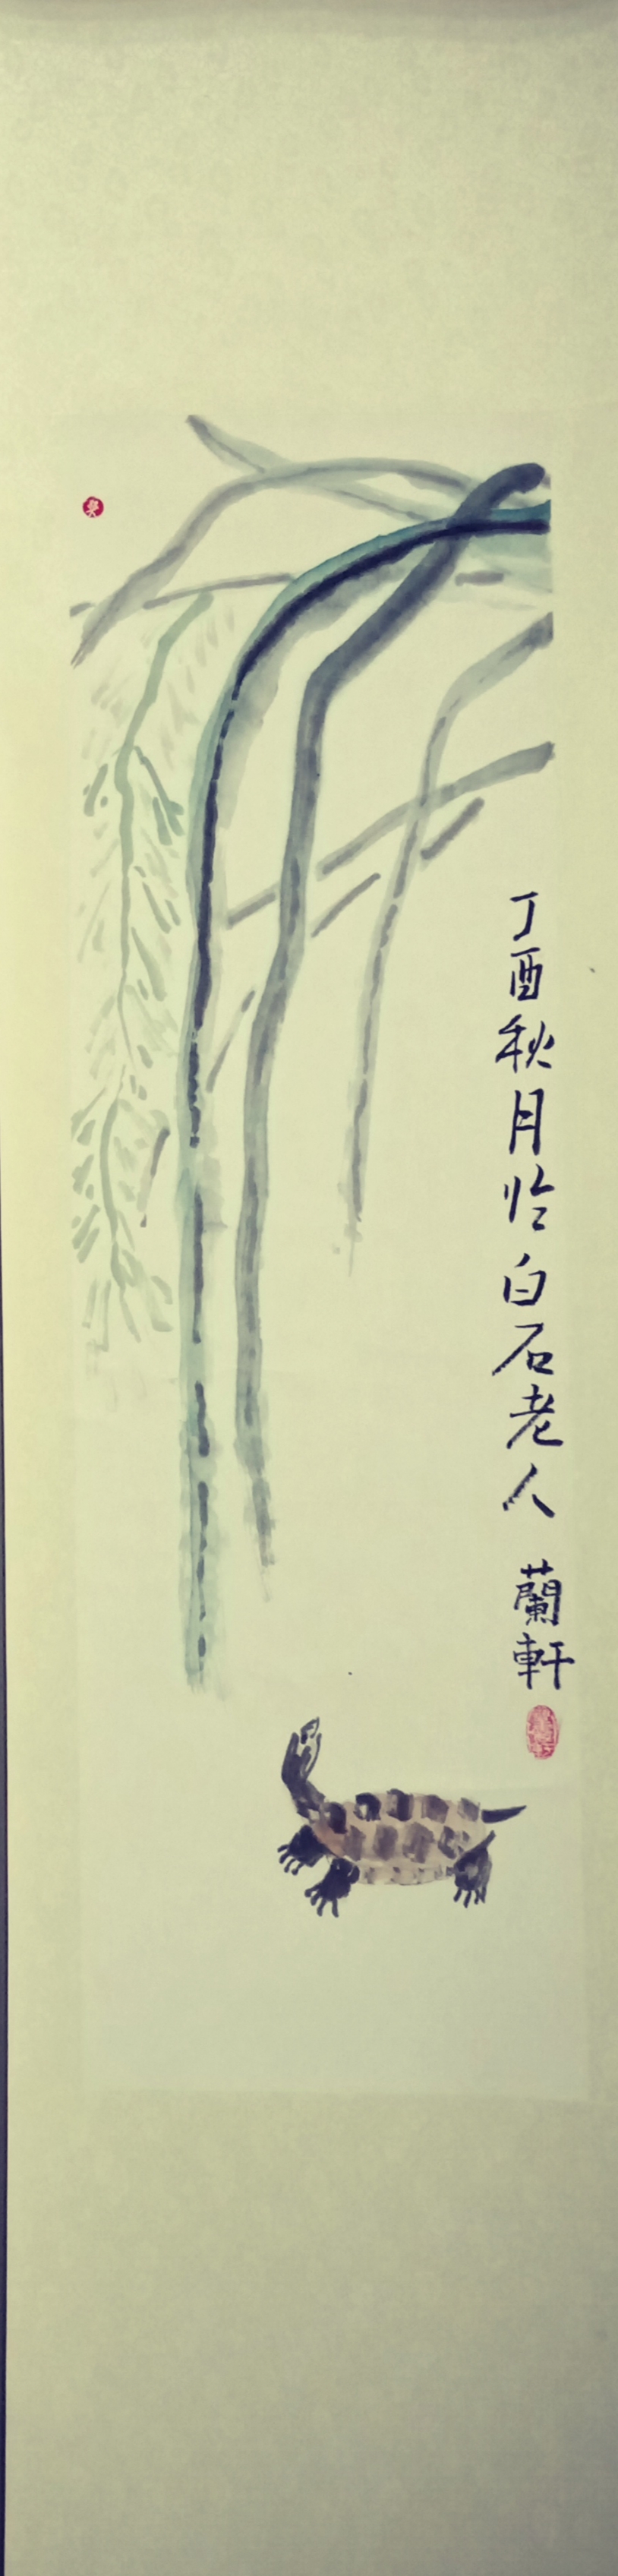 丁酉秋月临白石老人 蘭軒